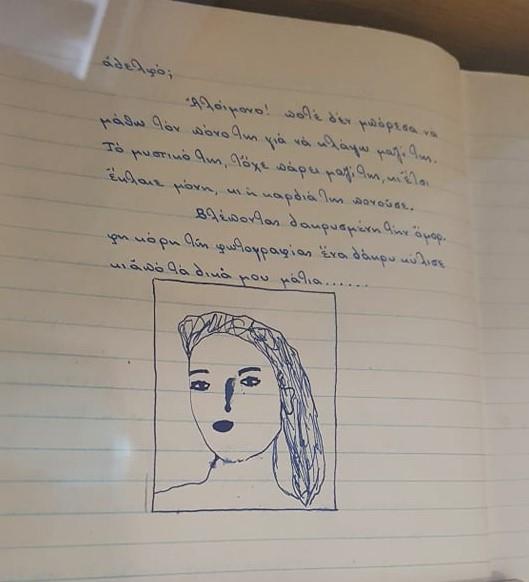 ἀδελφό;
Ἀλοίμονο! ποτέ δέν μπόρεσα νά
μάθω τόν πόνο της γιά νά κλάψω μαζί της.
Τό μυστικό της, τὄχε πάρει μαζί της, κι ἔτσι
ἔκλαιε μόνη, κι ἡ καρδιά της πονοῦσε.
Βλέποντας δακρυσμένη τήν ὄμορ.
φη κόρη τῆς φωτογραφίας ἕνα δάκρυ κύλισε
κι ἀπό τά δικά μου μάτια......